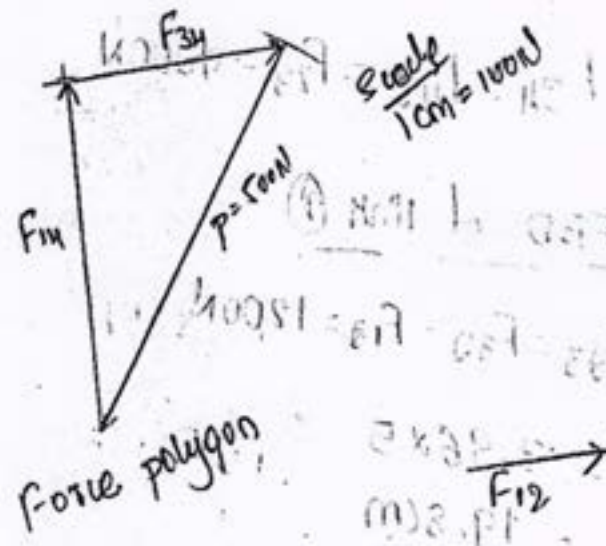 F34
scale
1cm = 100N
F14
P=500N
Force polygon
F12